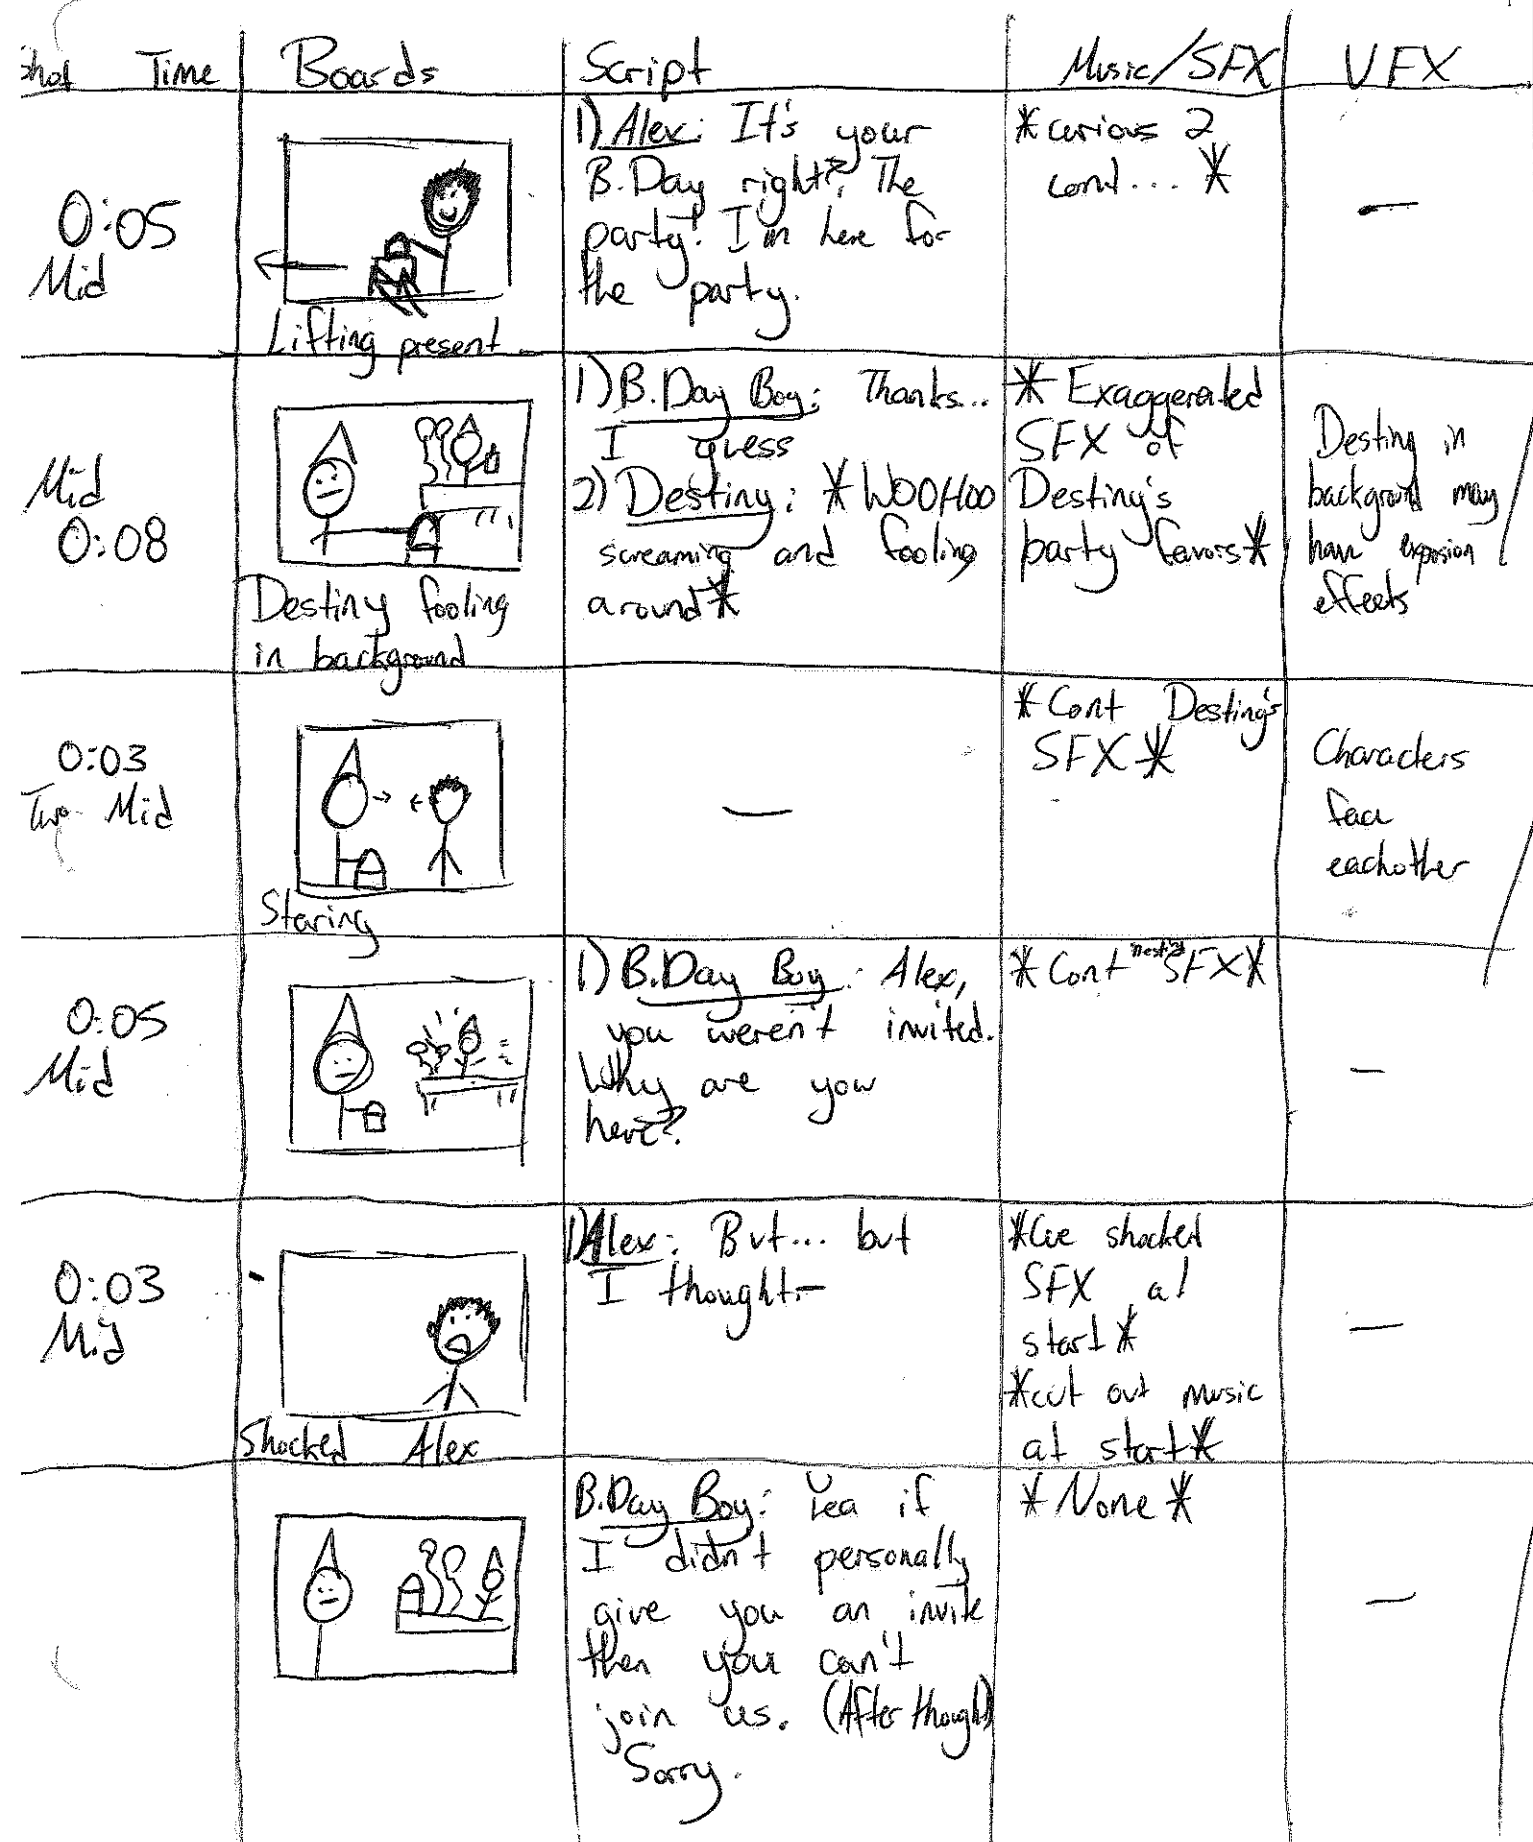 Shot Time Boards Script Music/SFX VFX
0:05
Mid
Lifting present
1) Alex: It's your
B.Day right? The
party! I'm here for
the party.
*curious 2
cont... *
—
Mid
0:08
Destiny fooling
in background
1) B.Day Boy: Thanks...
I guess
2) Destiny: *WOOHOO
screaming and fooling
around*
* Exaggerated
SFX of
Destiny's
party favors*
Destiny in
background may
have exposion
effects
0:03
Two Mid
Staring
—
*Cont Destiny's
SFX*
Characters
face
eachother
0:05
Mid
1) B.Day Boy: Alex,
you weren't invited.
Why are you
here?
*Cont Destiny SFX*
—
0:03
Mid
Shocked Alex
1) Alex: But... but
I thought—
shocked
SFX at
start*
*cut out music
at start*
—
B.Day Boy: Yea if
I didn't personally
give you an invite
then you can't
join us. (After thought)
Sorry.
*None*
—